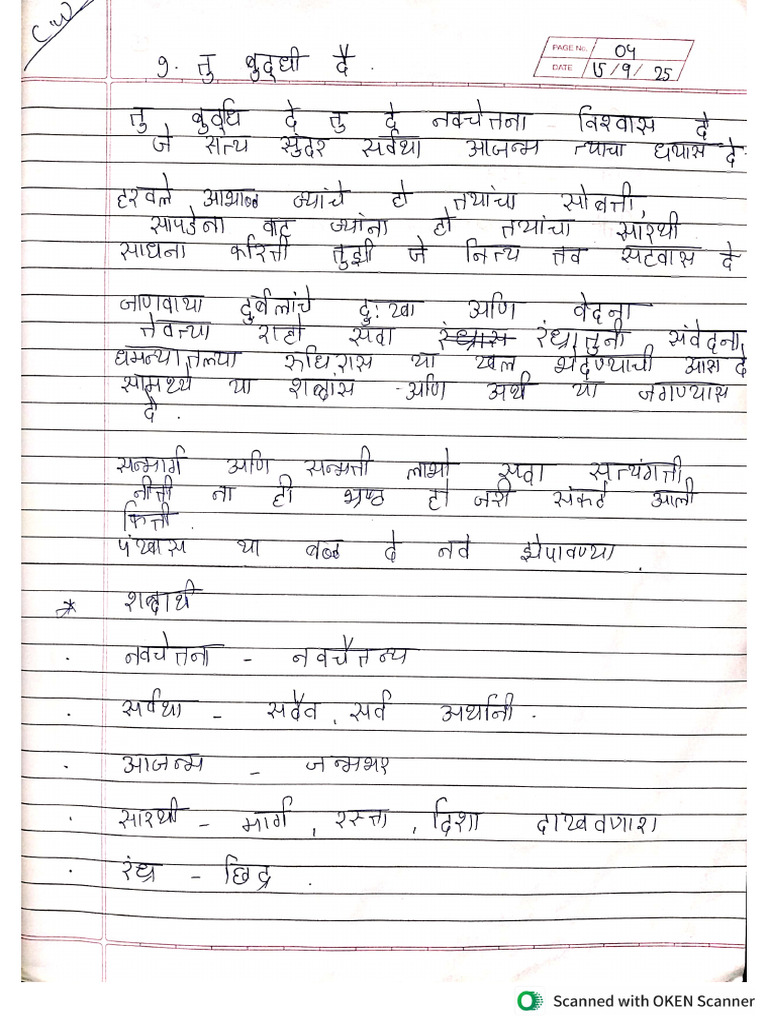 C.W
PAGE No. 04
DATE 15/9/25
१. तु बुद्धी दे.
तु बुध्दि दे तु दे नवचेतना विश्वास दे
जे सत्य सुंदर सर्वथा आजन्म त्याचा ध्यास दे
हरवले आभाळ ज्यांचे हो तयांचा सोबती,
सापडेना वाट ज्यांना हो तयांचा सारथी
साधना करिती तुझी जे नित्य तव सटवास दे
जाणवाया दुर्बलांचे दुःखा अणि वेदना
तेवत्या राहो सदा रंध्रातुनी संवेदना,
धमन्यातल्या रुधिरास या खल भेदण्याची आस दे
सामर्थ्य या शब्दांस अणि अर्थ या जगण्यास
दे.
सन्मार्ग अणि सन्मती लाभो सदा सत्यंगती
नीती ना ही भ्रष्ठ हो जरी संकटे आली
किती.
पंखास या बळ दे नवे झेपावण्या.
* शब्दार्थ
. नवचेतना - नवचैतन्य
. सर्वथा - सदैव, सर्व अर्थानी.
. आजन्म - जन्मभर
. सारथी - मार्ग, रस्ता, दिशा दाखवणारा
. रंध्र - छिद्र.
Scanned with OKEN Scanner